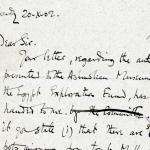 20-X-02.
Dear Sir.
Your letter, regarding the
presented to the Ashmolean Museum
the Egypt Exploration Fund, has
handed to me.
it you state (1) that there are